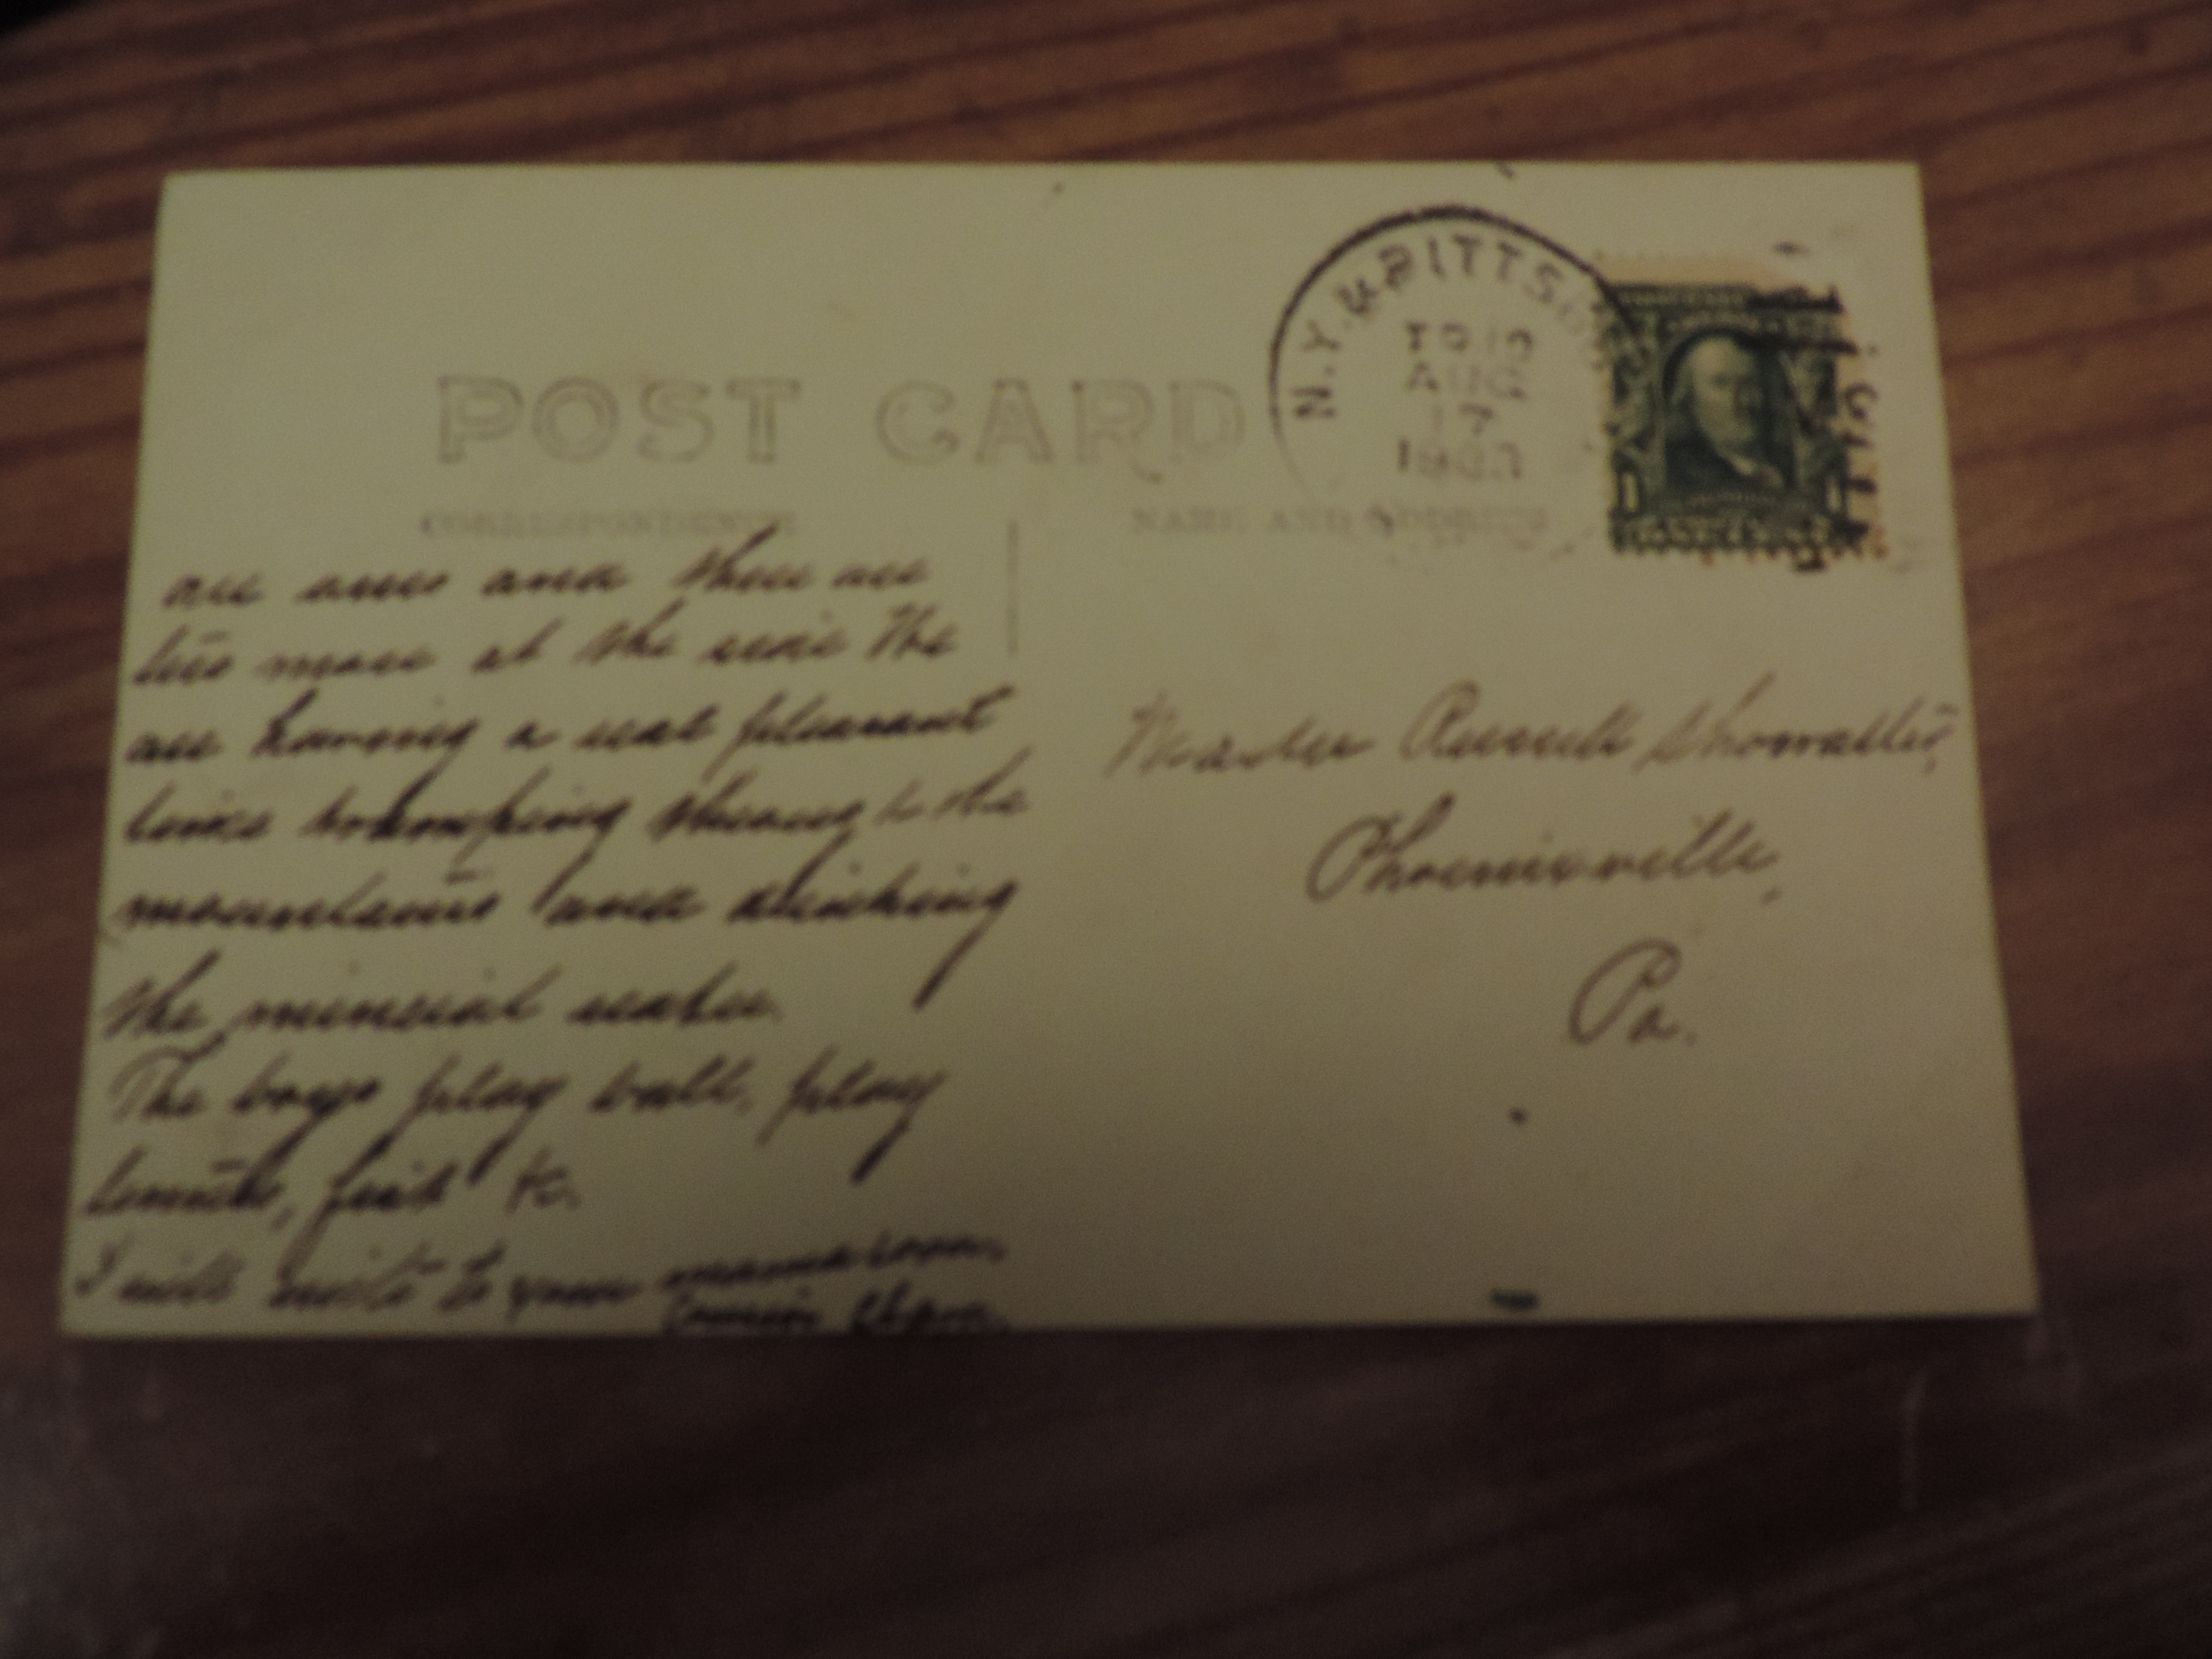 N.Y. & PITTS
AUG
17
POST CARD
CORRESPONDENCE
NAME AND ADDRESS
1
are and there are
more at the the
are having a real pleasant
time tramping through the
mountains and drinking
the mineral water.
The boys play ball, play
tennis, fish &c.
I will write to your mama soon.
Cousin
Master Russell Showalter,
Phoenixville,
Pa.